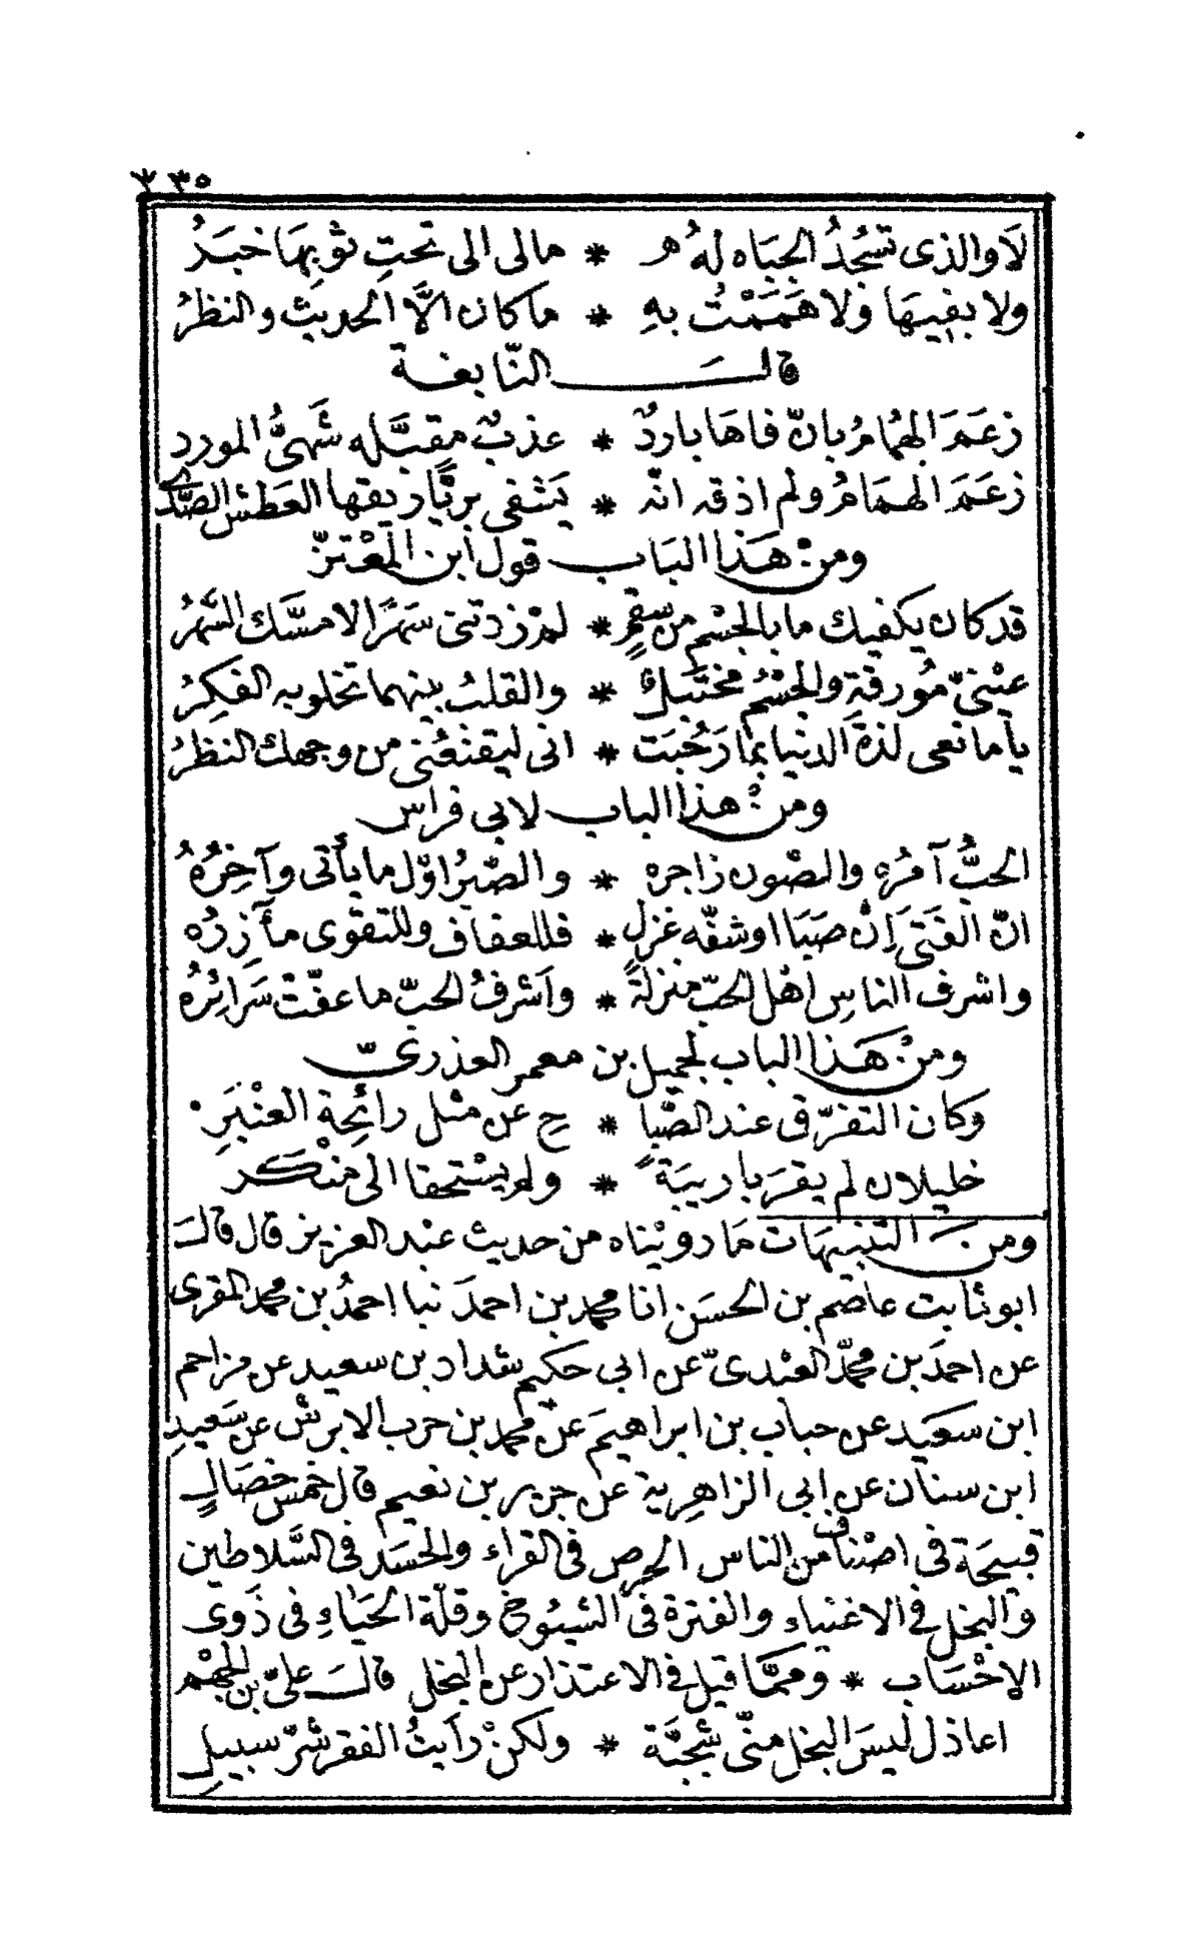 ٣٣٥
لَا والذى تسْجُدُ الجبَاه لهُ * مالى الى تحتِ ثوبِهَا خبَرُ
ولا بفيهَا ولا هَمَمْتُ بهِ * ما كان الَّا الحديث والنظرُ
قالـــَـــ النّابغة
زعَمَ الهمُامُ بانّ فاهَا باردٌ * عذبٌ مقبّله شَهىُّ المورد
زعَمَ الهمَامُ ولم اذقه انّه * يَشفى بريَّا ريقها العَطشِ الصَّدى
ومن هَذا البَاب قول ابن المعْتزّ
قد كان يكفيك ما بالجسْم من سقمٍ * لمْ زدتنى سَهَرًا لا مسَّك السَّهَرُ
عيْنىّ مؤرقةٍ والجسْمُ مختَبَلٌ * والقلبُ بينهما تخلو به الفكِرُ
يا مانعى لذةَ الدنيا بمَا رَحُبَت * انى ليقنعُنى من وجهك النظرُ
ومن هذا الباب لابى فراس
الحبُّ آمرُه والصْون زاجره * والصّبرُ اوّل ما يأتى وآخِرُهُ
انّ الفَتى اِنْ صَبَا او شفّه غزلٍ * فللعفاف وللتقوى مآزِرُه
واشرف الناسِ اهْل الحبّ منزلةً * واَشرفُ الحبّ ما عفّتْ سَرَائرُه
ومنْ هَذا الباب لجميل بن معمر العذرىّ
وكان التفرّق عند الصّبا * ح عن مثل رائحِة العنْبَرِ
خليلان لم يقرَبا ريبَة * ولم يسْتحقا الى منْكر
ومن التنبيهَات مَا رويْناه من حديث عبْد العزيز قال قالـَ
ابو ثابت عاصم بن الحسَن انا محمد بن احمدَ نبا احمدُ بن محمد المقرى
عن احمدَ بن محمّد العبْدىّ عن ابي حكيم شداد بن سعيد عن مزاحم
ابن سعَيد عن حباب بن ابراهيمَ عنْ محمد بن حرب الابرش عن سَعيدِ
ابن سنان عن ابي الزاهرية عن جرير بن نعيم قال خمس خصَالٍ
قبيحَة فى اصْناف من الناس الحرص فى القراء والحسَد فى السَّلاطين
والبخل فى الاغنياء والفترة فى الشيوخ وقلّة الحَيَاءِ فى ذَوى
الاحْسَاب * وممَّا قيل فى الاعتذار عن البخل قالـَ علىّ بن الجهْم
اعاذل ليسَ البخل منّى سَجيَّة * ولكنْ رأَيتُ الفقر شرّ سبيلِ